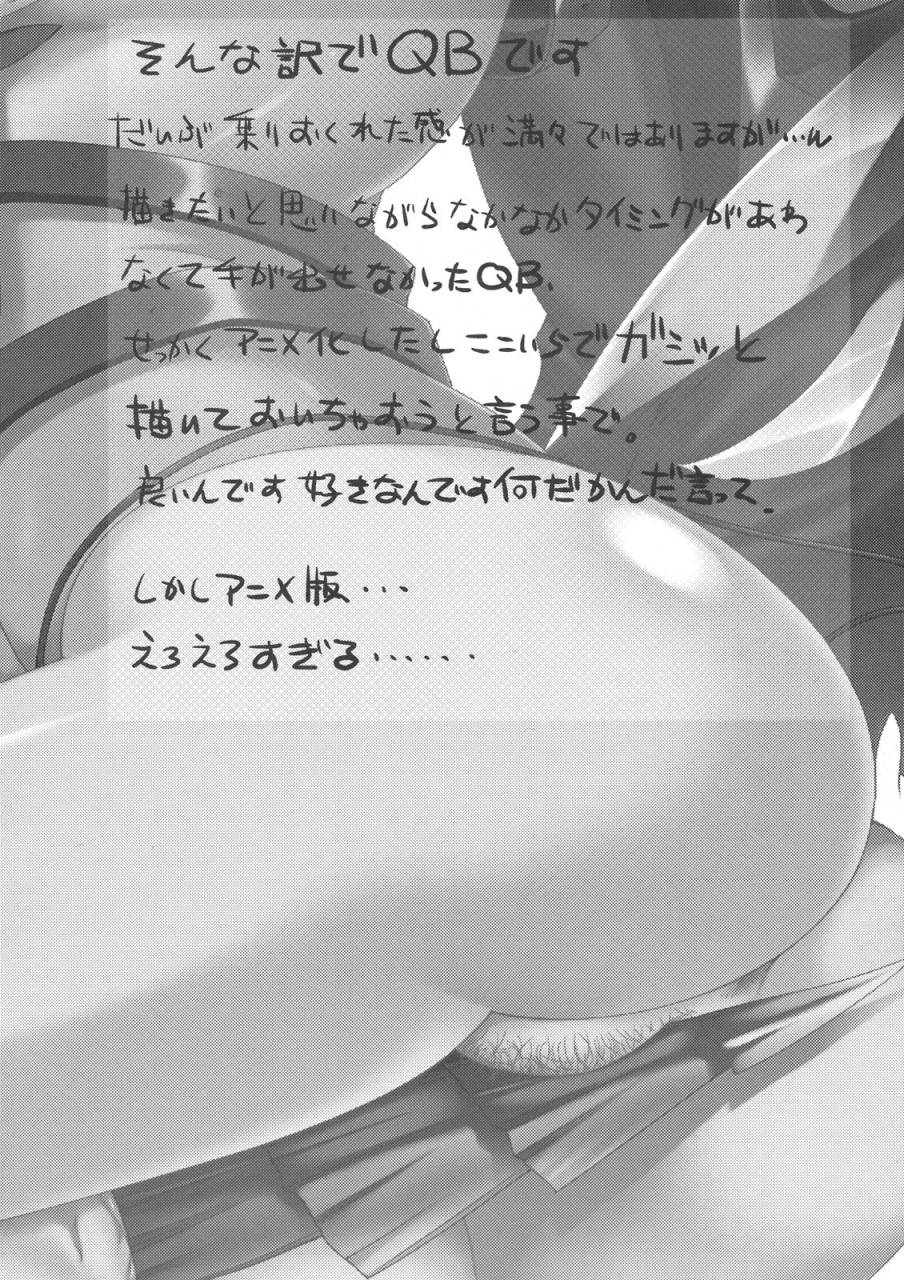 そんな訳でQBです
だいぶ乗りおくれた感が満々ではありますが…ん
描きたいと思いながらなかなかタイミングがあわ
なくて手が出せなかったQB、
せっかくアニメ化したしここいらでガミッと
描いておいちゃおうと言う事で。
良いんです好きなんです何だかんだ言って.
しかしアニメ版・・・
えろえろすぎる・・・・・・